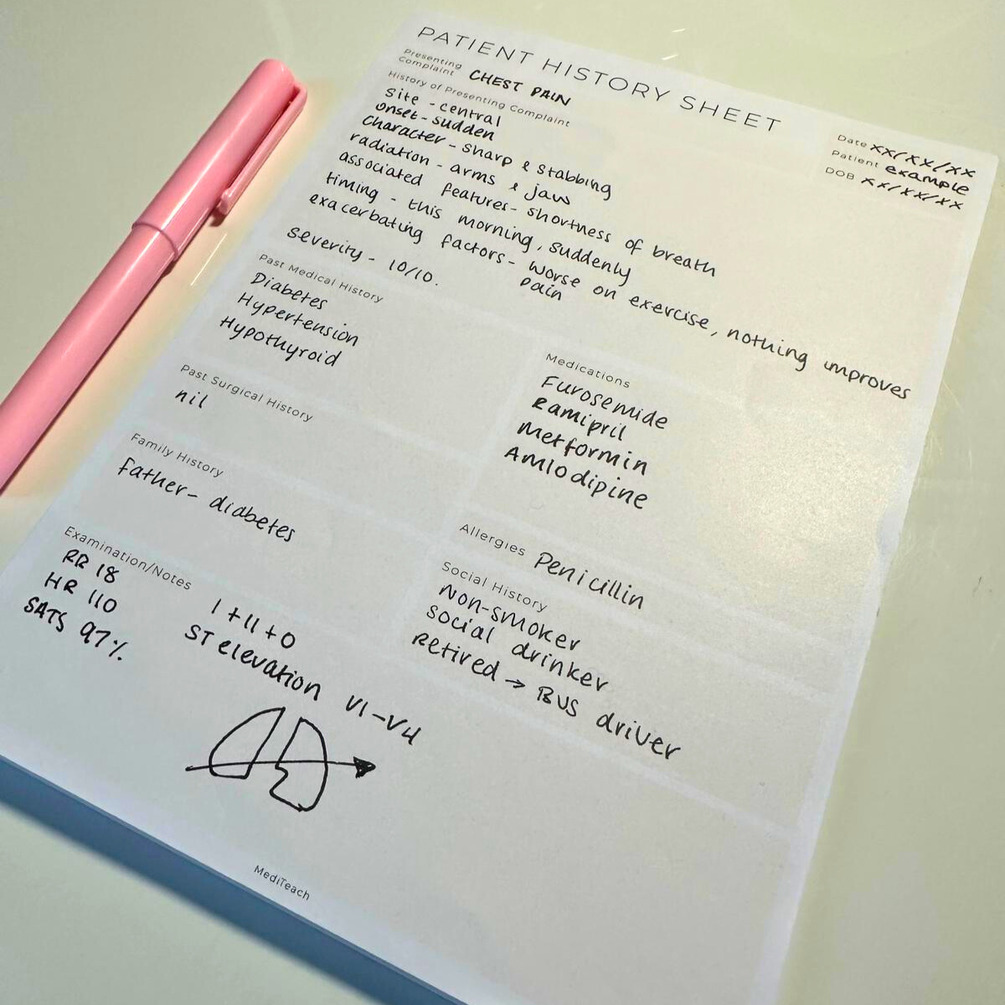 PATIENT HISTORY SHEET
Presenting
Complaint CHEST PAIN
Date xx/xx/xx
Patient example
DOB xx/xx/xx
History of Presenting Complaint
Site - central
onset - sudden
Character - sharp & stabbing
radiation - arms & jaw
associated features - shortness of breath
timing - this morning, suddenly
exacerbating factors - worse on exercise, nothing improves
pain
severity - 10/10.
Past Medical History
Diabetes
Hypertension
Hypothyroid
Medications
Furosemide
Ramipril
Metformin
Amlodipine
Past Surgical History
nil
Family History
Father - diabetes
Allergies Penicillin
Social History
Non-smoker
social drinker
Retired → BUS driver
Examination/Notes
RR 18
HR 110
SATS 97%
I + II + 0
ST elevation V1-V4
MediTeach